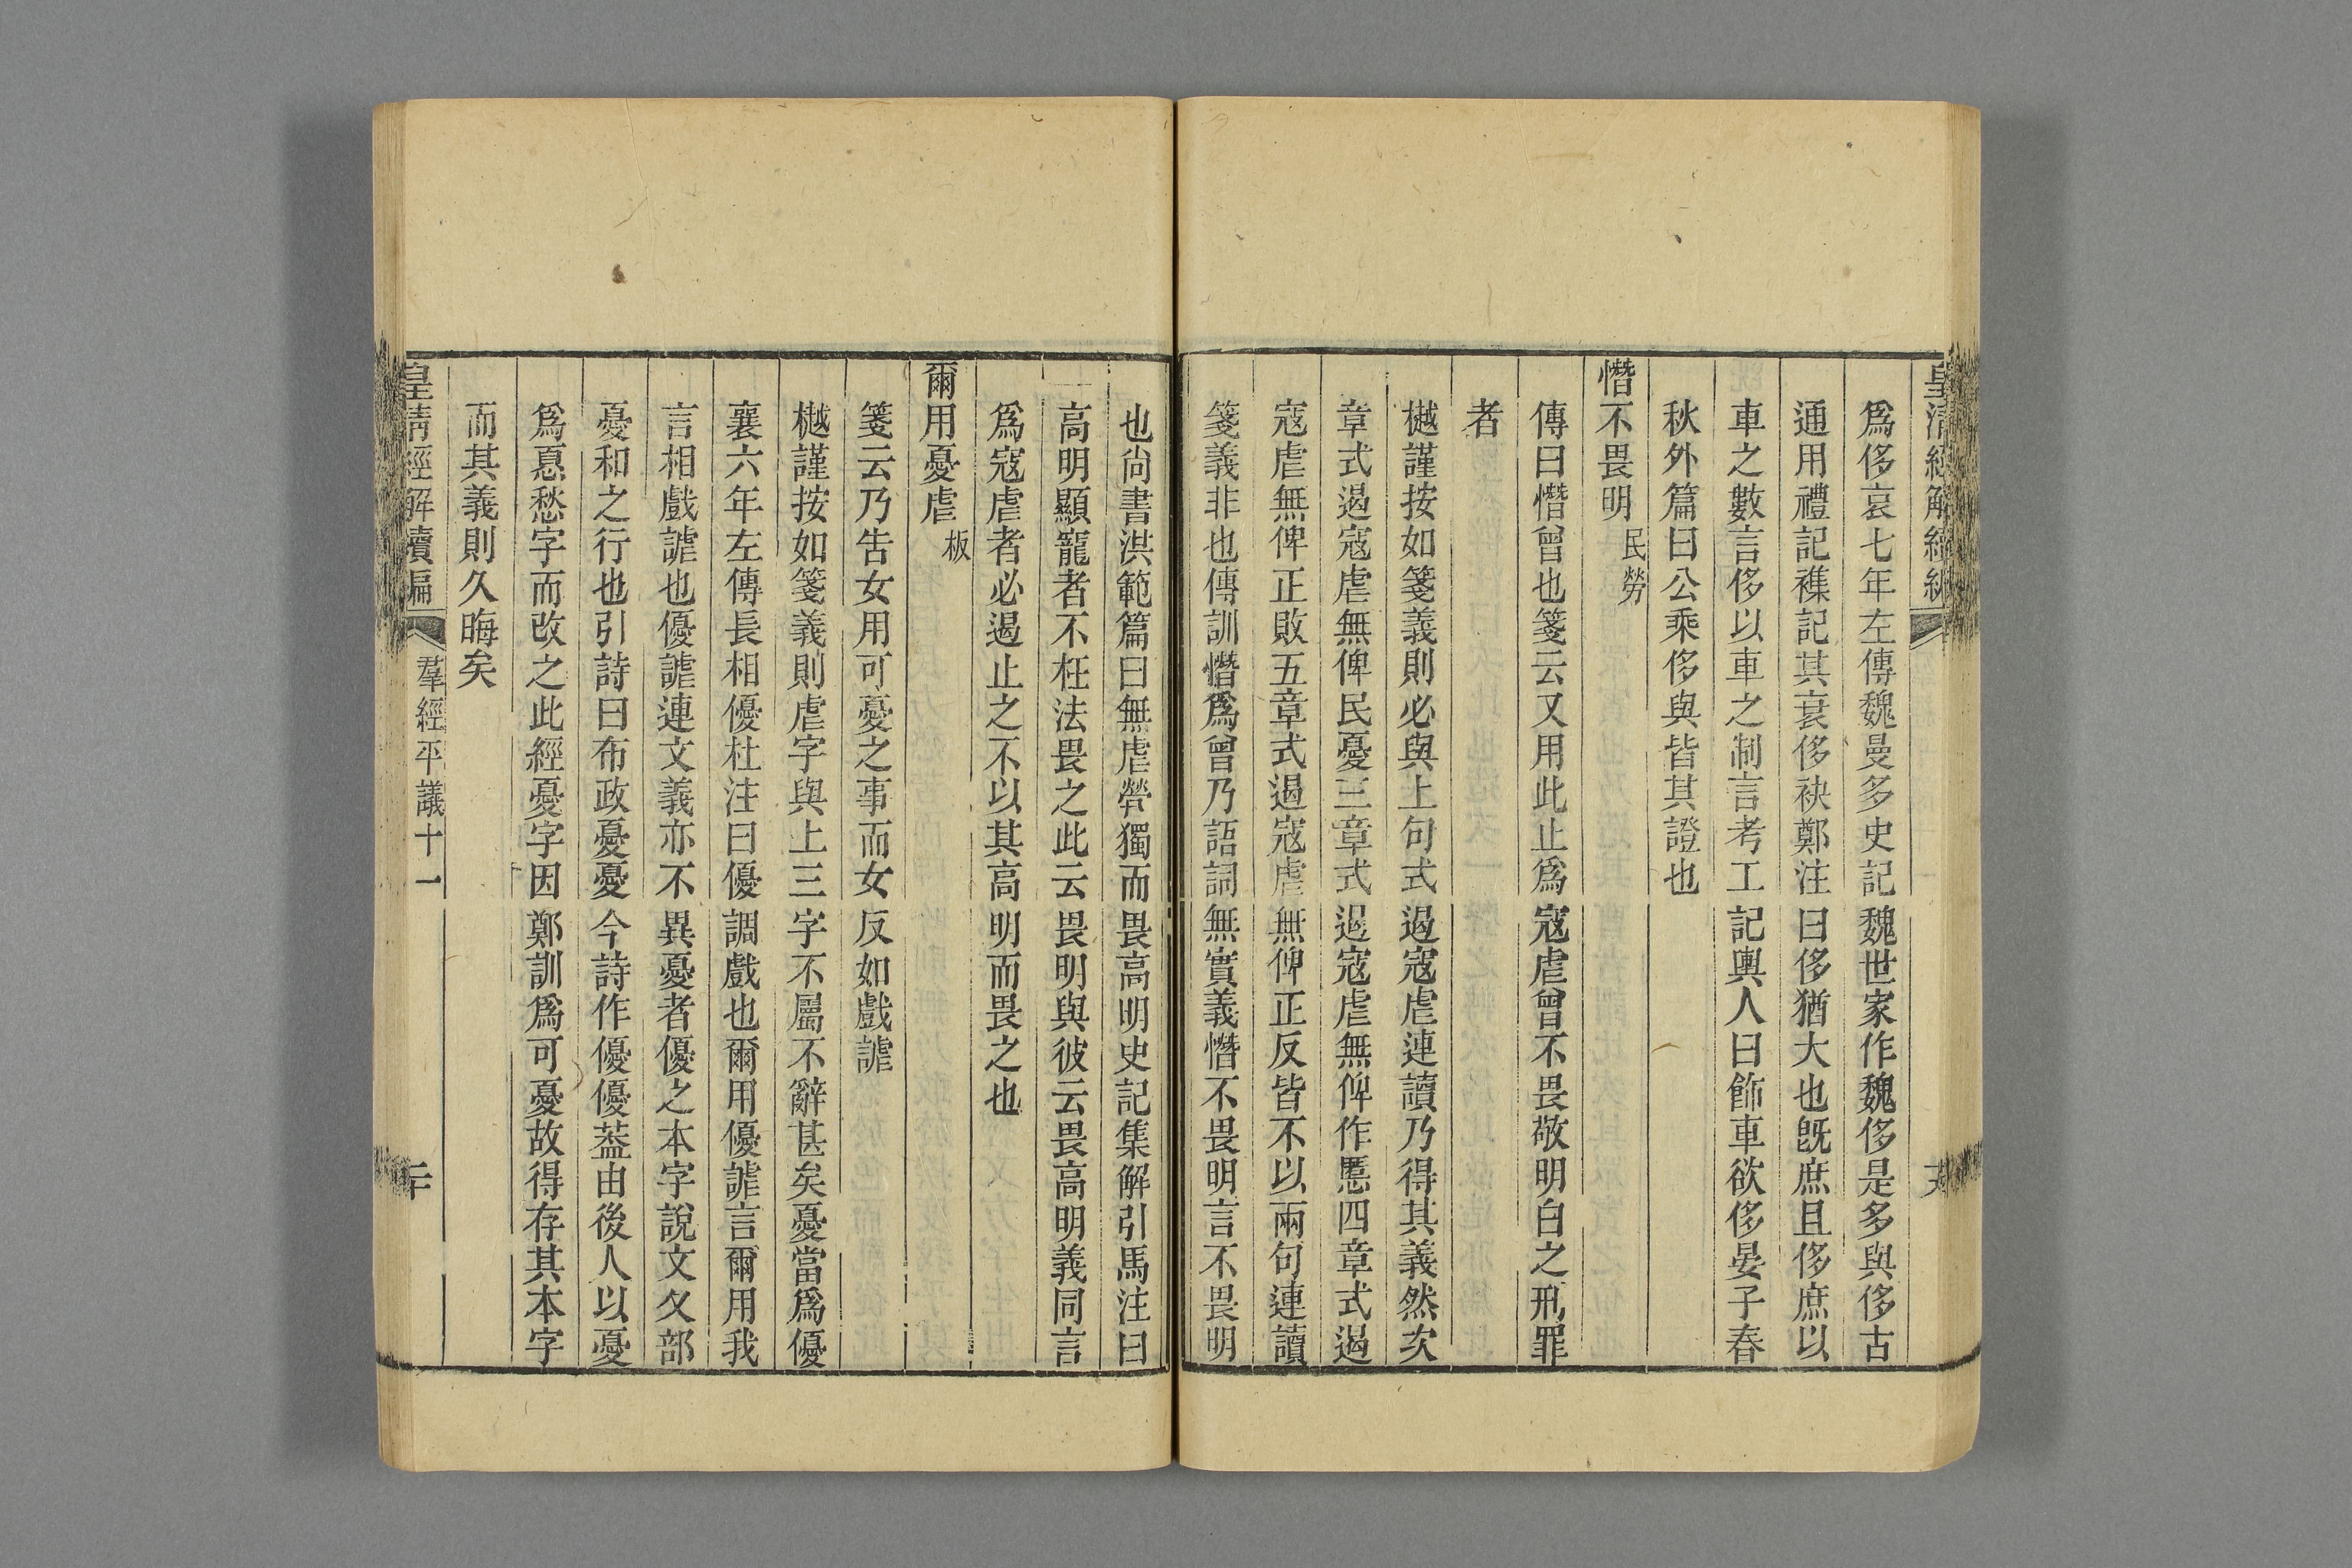 皇清經解續編
爲侈哀七年左傳魏曼多史記魏世家作魏侈是多與侈古
通用禮記襍記其衰侈袂鄭注曰侈猶大也旣庶且侈庶以
車之數言侈以車之制言考工記輿人曰飾車欲侈晏子春
秋外篇曰公乘侈與皆其證也
憯不畏明 民勞
傳曰憯曾也箋云又用此止爲寇虐曾不畏敬明白之刑罪
者
樾謹按如箋義則必與上句式遏寇虐連讀乃得其義然次
章式遏寇虐無俾民憂三章式遏寇虐無俾作慝四章式遏
寇虐無俾正敗五章式遏寇虐無俾正反皆不以兩句連讀
箋義非也傳訓憯爲曾乃語詞無實義憯不畏明言不畏明
也尙書洪範篇曰無虐煢獨而畏高明史記集解引馬注曰
高明顯寵者不枉法畏之此云畏明與彼云畏高明義同言
爲寇虐者必遏止之不以其高明而畏之也
爾用憂虐 板
箋云乃吿女用可憂之事而女反如戲謔
樾謹按如箋義則虐字與上三字不屬不辭甚矣憂當爲優
襄六年左傳長相優杜注曰優調戲也爾用優謔言爾用我
言相戲謔也優謔連文義亦不異憂者優之本字說文夊部
憂和之行也引詩曰布政憂憂今詩作優優葢由後人以憂
爲惪愁字而改之此經憂字因鄭訓爲可憂故得存其本字
而其義則久晦矣
皇清經解續編 羣經平議十一 二十